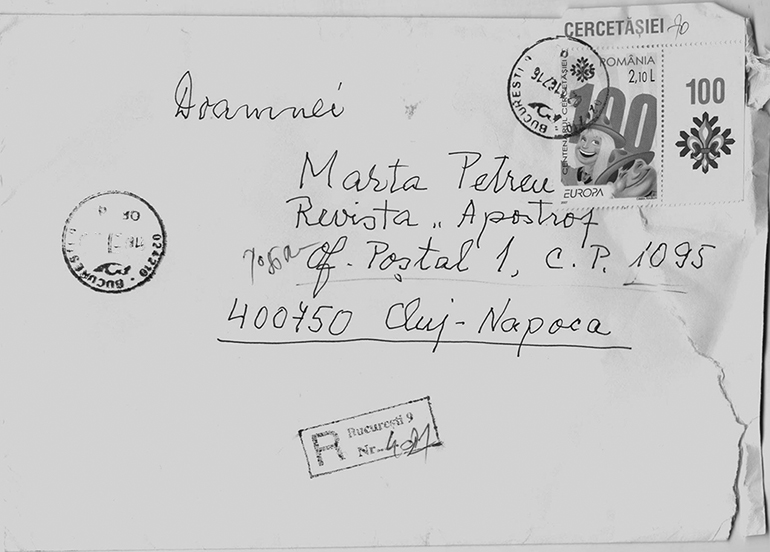 CERCETĂȘIEI
ROMÂNIA
2,10 L
100
100
CENTENARUL CERCETĂȘIEI
EUROPA
BUCUREȘTI
Doamnei
Marta Petreu
Revista „ Apostrof
Of. Poștal 1, C.P. 1095
400750 Cluj-Napoca
024216 · BUCUREȘTI
OF
R București 9
Nr.